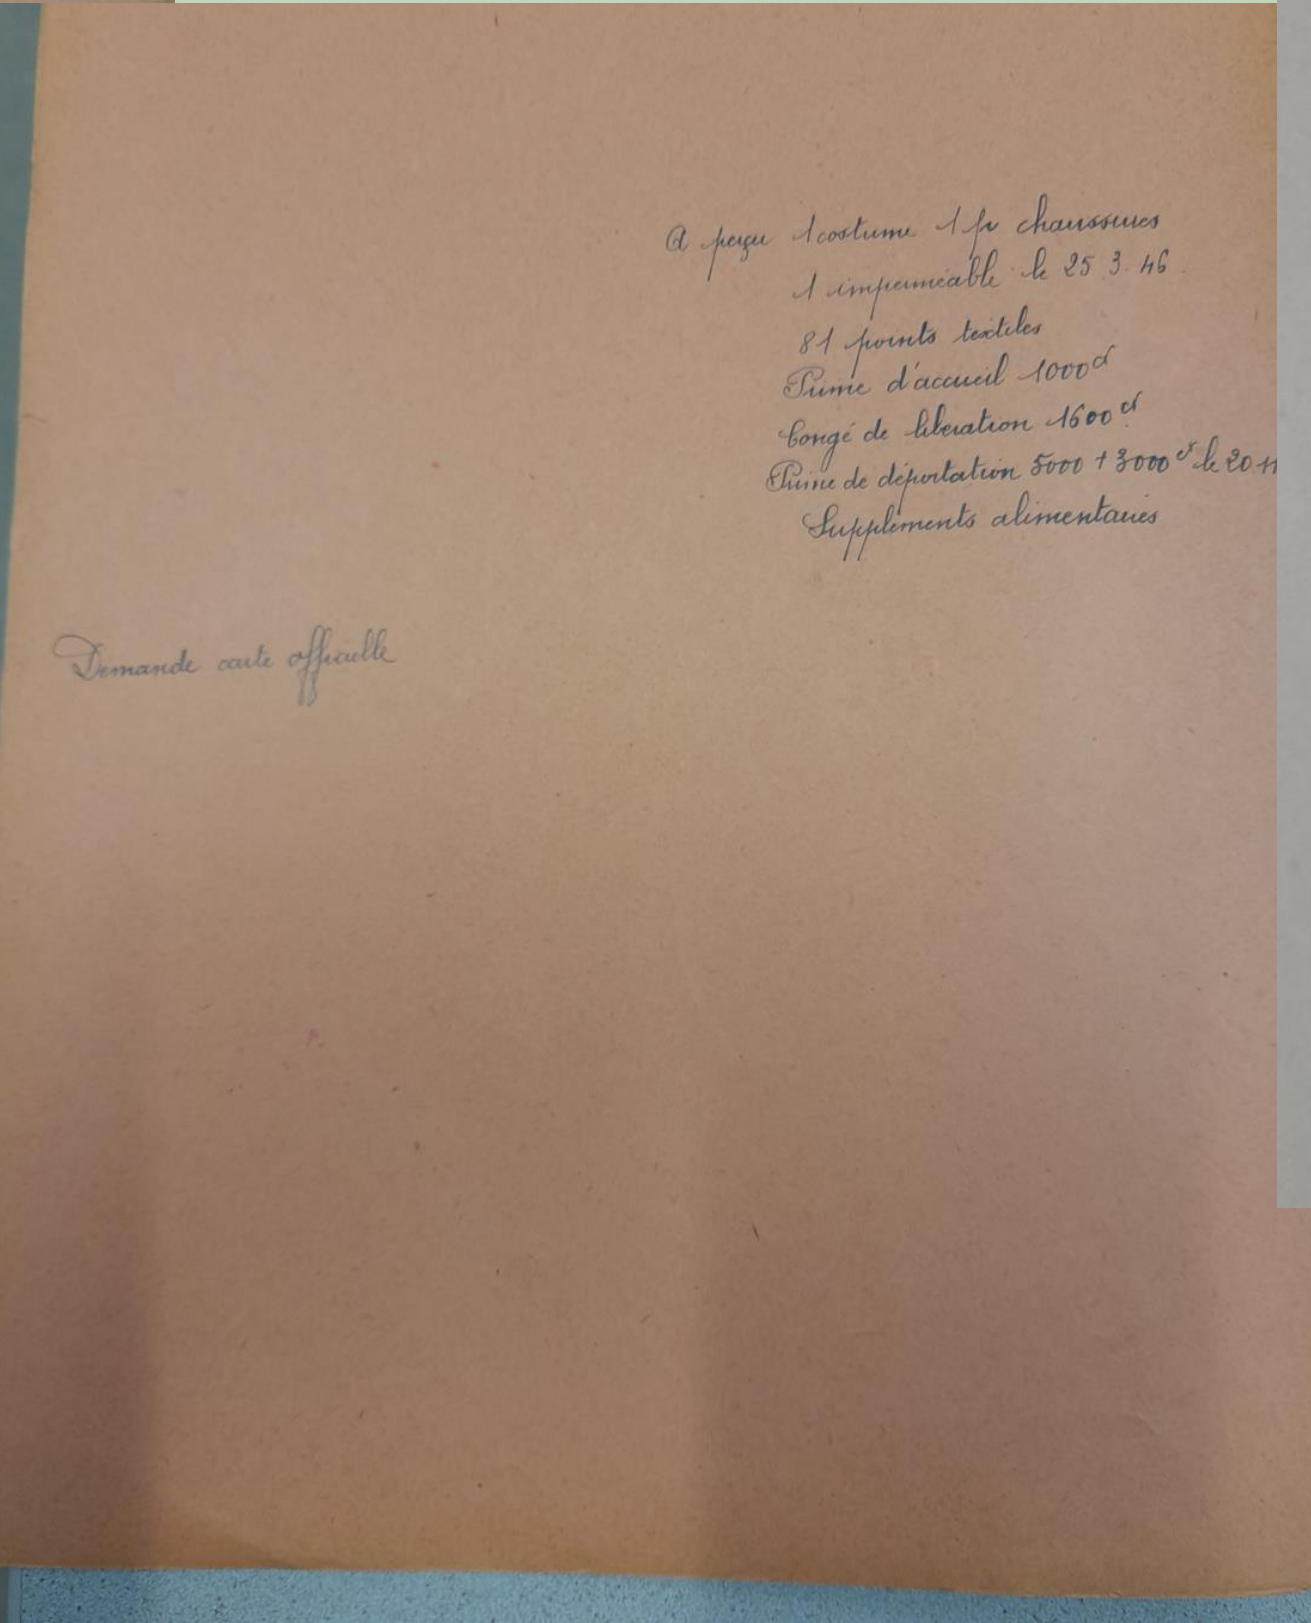 A perçu 1 costume 1 pr chaussures
1 imperméable le 25 3. 46
81 points textiles
Prime d'accueil 1000 d
Congé de libération 1600 d
Prime de déportation 5000 + 3000 d le 20 11
Suppléments alimentaires
Demande carte officielle